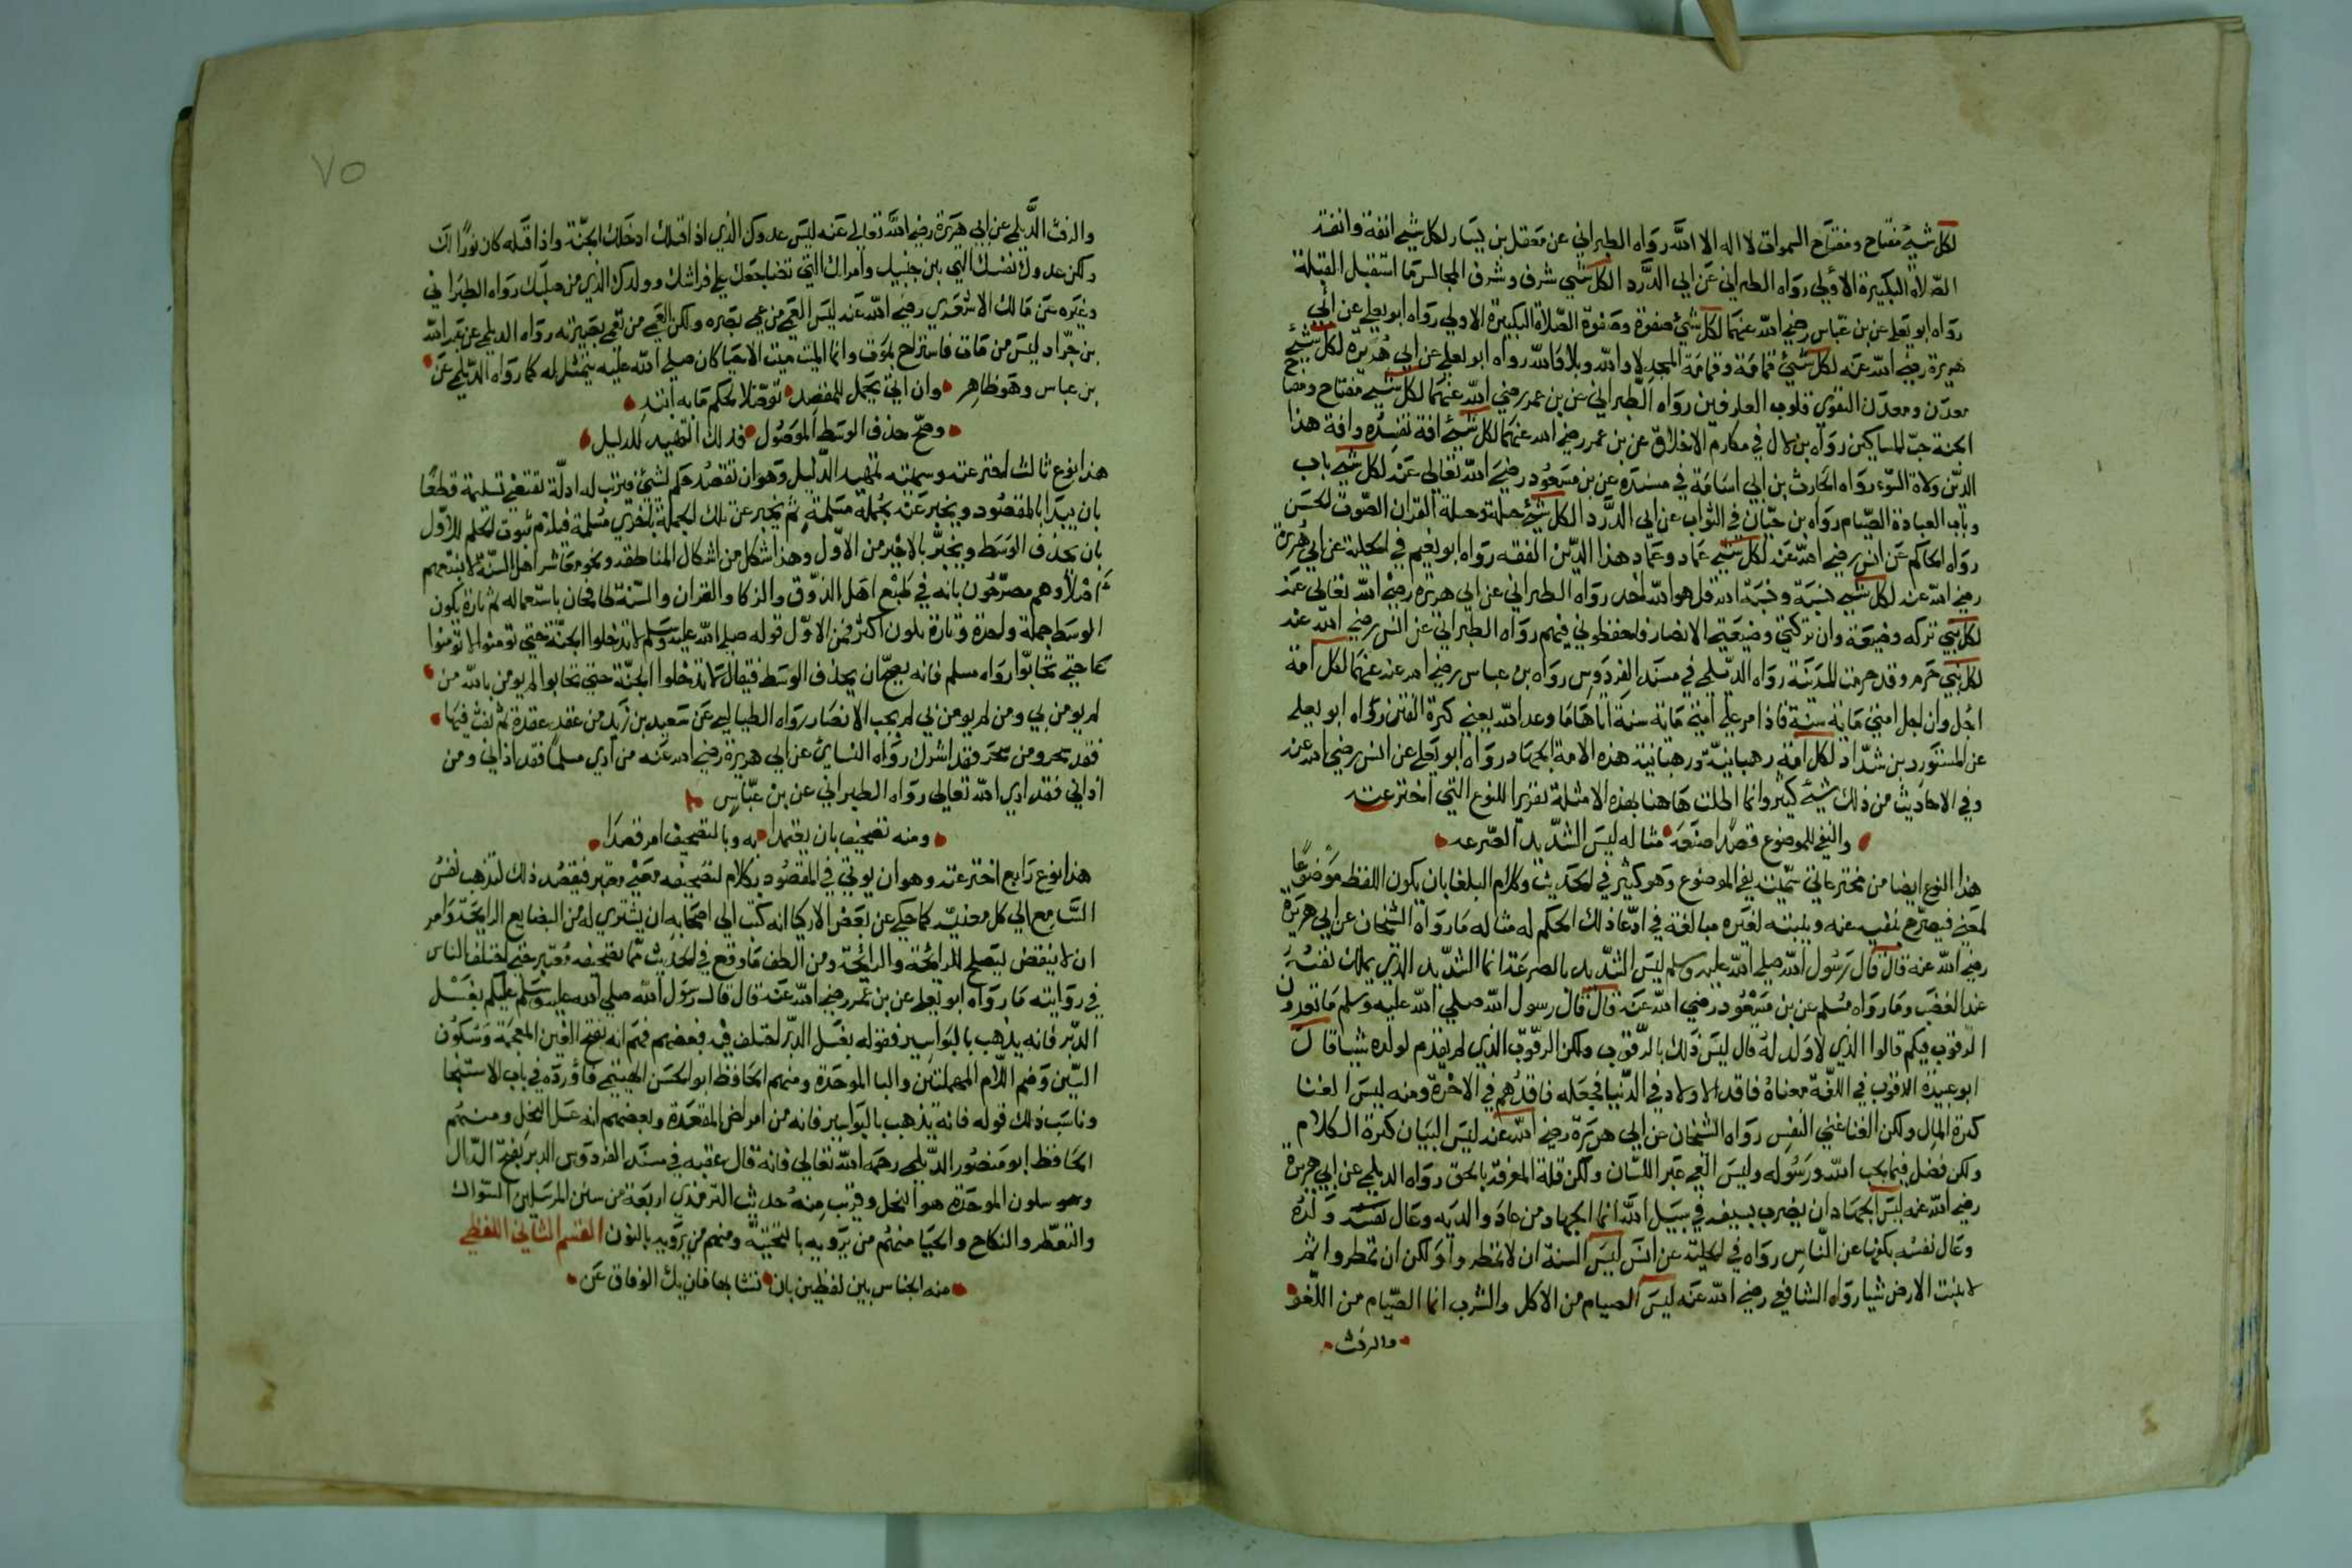 لكل شيء مفتاح ومفتاح السموات لا اله الا الله رواه الطبراني عن معقل بن يسار لكل شيء انفة وانفة
الصلاة التكبيرة الاولى رواه الطبراني عن ابي الدرد الكل شي شرف وشرف المجالس ما استقبل القبلة
رواه ابو يعلي عن بن عباس رضي الله عنهما لكل شيء صفوة وصفوة الصلاة التكبيرة الاولي رواه ابو يعلي عن ابي
هريرة رضي الله عنه لكل شيء قمامة وقمامة المجد لا والله وبلا والله رواه ابو يعلي عن ابي هريرة لكل شيء
معدن ومعدن التقوي قلوب العارفين رواه الطبراني عن بن عمر رضي الله عنهما لكل شيء مفتاح ومفتاح
الجنة حب المساكين رواه بن لال في مكارم الاخلاق عن بن عمر رضي الله عنهما لكل شيء افة تفسده وافة هذا
الدين ولاة السوء رواه الحارث بن ابي اسامة في مسنده عن بن مسعود رضي الله تعالى عنه لكل شيء باب
وباب العبادة الصيام رواه بن حبان في الثواب عن ابي الدرد الكل شيء حلية وحلية القران الصوت الحسن
رواه الحاكم عن انس رضي الله عنه لكل شيء عماد وعماد هذا الدين الفقه رواه ابو نعيم في الحلية عن ابي هريرة
رضي الله عنه لكل شيء نسبة ونسبة الله قل هو الله احد رواه الطبراني عن ابي هريرة رضي الله تعالى عنه
لكل نبي تركه وضيعة وان تركتي وضيعتي الانصار فاحفظوني فيهم رواه الطبراني عن انس رضي الله عنه
لكل نبي حرم وقد حرمت المدينة رواه الديلمي في مسند الفردوس رواه بن عباس رضي الله عنهما لكل امة
اجل وان اجل امتي مائة سنة فاذا مر علي امتي مائة سنة اتاها ما وعد الله يعني كثرة الفتن رواه ابو يعلي
عن المستورد بن شداد لكل امة رهبانية ورهبانية هذه الامة الجهاد رواه ابو يعلي عن انس رضي الله عنه
وفي الاحاديث من ذلك شيء كثير وانما اطلت هاهنا بهذه الامثلة تقريرا للنوع التي اخترعته
والنفي للموضوع قصدا صنعه مثاله ليس الشديد الصرعه
هذا النوع ايضا من مخترعاتي سميته نفي الموضوع وهو كثير في الحديث وكلام البلغا بان يكون اللفظ موضوعا
لمعني فيصرح بنفيه عنه ويثبته لغيره مبالغة في ادعا ذلك الحكم له مثاله ما رواه الشيخان عن ابي هريرة
رضي الله عنه قال قال رسول الله صلي الله عليه وسلم ليس الشديد بالصرعة انما الشديد الذي يملك نفسه
عند الغضب وما رواه مسلم عن بن مسعود رضي الله عنه قال قال رسول الله صلي الله عليه وسلم ما تعدون
الرقوب فيكم قالوا الذي لا ولد له قال ليس ذلك بالرقوب ولكن الرقوب الذي لم يقدم لولده شيا قال
ابو عبيدة الرقوب في اللغة معناه فاقد الاولاد في الدنيا فجعله فاقدهم في الاخرة ومنه ليس الغنا
كثرة المال ولكن الغنا غني النفس رواه الشيخان عن ابي هريرة رضي الله عنه ليس البيان كثرة الكلام
ولكن فضل فيما يحب الله ورسوله وليس العي عي اللسان ولكن قلة المعرفة بالحق رواه الديلمي عن ابي هريرة
رضي الله عنه ليس الجهاد ان يضرب بسيفه في سبيل الله انما الجهاد من عاد والديه وعال نفسه وولده
وعال نفسه يكفها عن الناس رواه في الحلية عن انس ليس السنة ان لا تمطروا ولكن ان تمطروا ثم
لا تنبت الارض شيا رواه الشافعي رضي الله عنه ليس الصيام من الاكل والشرب انما الصيام من اللغو
والرفث
٧٥
والرفث الديلمي عن ابي هريرة رضي الله تعالى عنه ليس عدوك الذي اذا قتلك ادخلك الجنة واذا قتله كان نورا لك
ولكن عدوك نفسك التي بين جنبيك وامراتك التي تضاجعك علي فراشك وولدك الذي من صلبك رواه الطبراني
وغيره عن مالك الاشعري رضي الله عنه ليس العمي من عمي بصره ولكن العمي من تعمي بصيرته رواه الديلمي عن عبد الله
بن جراد ليس من مات فاستراح بموت وانما الميت ميت الاحيا كان صلي الله عليه يتمثل به كما رواه الديلمي عن
بن عباس وهو ظاهر وان ايتي بجمل للمقصد توصلا لحكم ما به ابتدي
وصح حذف الوسط الموصول فذلك التمهيد للدليل
هذا نوع ثالث اخترعته وسميته تمهيد الدليل وهو ان تقصد حكم لشيء فترتب له ادلة تقتضي تسليمه قطعا
بان يبدا بالمقصود ويخبر عنه بجملة مسلمة ثم يخبر عن تلك الجملة باخري مسلمة فيلزم ثبوت الحكم للاول
بان يحذف الوسط ويخبر بالاخير من الاول وهذا شكل من اشكال المناطقة ونحو معاشر اهل السنة لا نتبعهم
اصلا وهم مصرحون بانه في طبع اهل الذوق والذكا والقران والسنة طافحان باستعماله ثم تارة يكون
الوسط جملة واحدة وتارة يكون اكثر فمن الاول قوله صلي الله عليه وسلم لا تدخلوا الجنة حتي تومنوا ولا تومنوا
حتي تحابوا رواه مسلم فانه يصح ان يحذف الوسط فيقال لا تدخلوا الجنة حتي تحابوا لم يومن بالله من
لم يومن بي ومن لم يومن بي لم يحب الانصار رواه الطيالسي عن سعيد بن زيد من عقد عقدة ثم نفث فيها
فقد سحر ومن سحر فقد اشرك رواه النسائي عن ابي هريرة رضي الله عنه من اذي مسلما فقد اذاني ومن
اذاني فقد اذي الله تعالى رواه الطبراني عن بن عباس
ومنه تصحيف بان يعتمدا به وبالتصحيف امر قصدا
هذا نوع رابع اخترعته وهو ان يوتي في المقصود بكلام لتصحيفه معني معتبر فيقصد ذلك لتذهب نفس
السامع الي كل معنييه كما حكي عن بعض الاذكيا انه كتب الي اصحابه ان يشتري له من البضايع الرايجة وامر
ان لا ينقض ليصلح الرائجة والرائحة ومن الطف ما وقع في الحديث مما تصحيفه معتبر حتي اختلف الناس
في روايته ما رواه ابو يعلي عن بن عمر رضي الله عنه قال قال رسول الله صلي الله عليه وسلم عليكم بغسل
الدبر فانه يذهب بالبواسير فقوله بغسل الدبر اختلف فيه فبعضهم فهم انه بفتح الغين المعجمة وسكون
السين وضم اللام المهملتين والبا الموحدة ومنهم الحافظ ابو الحسن الهيثمي فاورده في باب الاستنجا
وناسب ذلك قوله فانه يذهب بالبواسير فانه من امراض المقعدة وبعضهم انه عسل النحل ومنهم
الحافظ ابو منصور الديلمي رحمه الله تعالي فانه قال عقبه في مسند الفردوس الدبر بفتح الدال
وهو سكون الموحدة هو النحل وقريب منه حديث الترمذي اربعة من سنن المرسلين السواك
والتعطر والنكاح والحيا منهم من يرويه بالتحتية ومنهم من يرويه بالنون القسم الثاني اللفظي
منه الجناس بين لفظين بان تشابها فان يك الوفاق عن